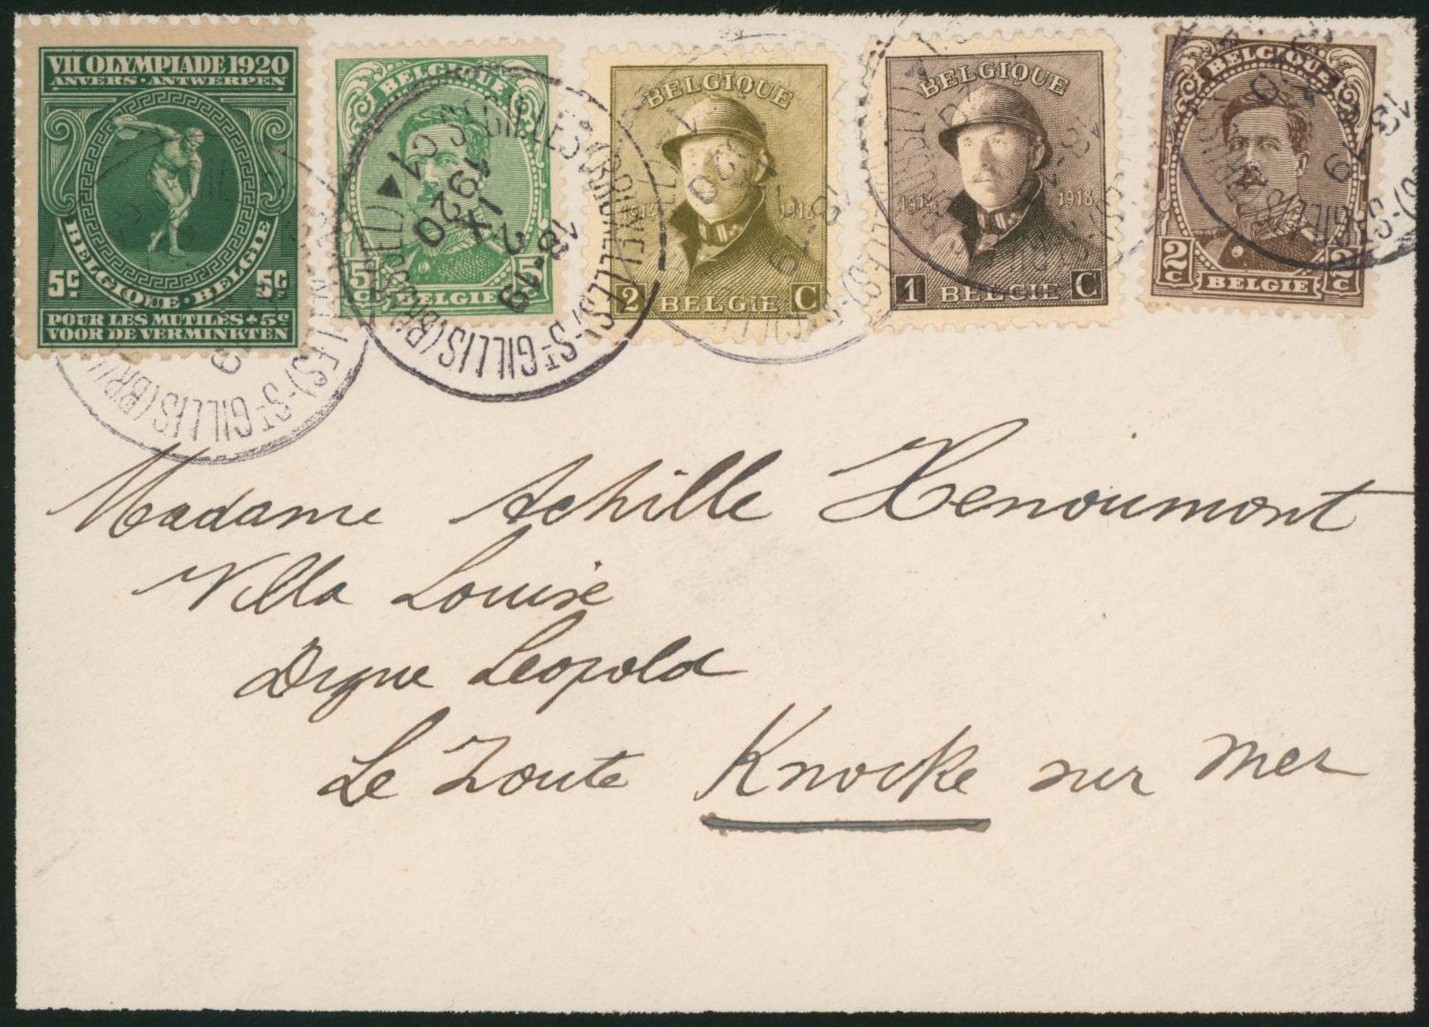 VII OLYMPIADE 1920
ANVERS · ANTWERPEN
BELGIQUE · BELGIË
5c 5c
POUR LES MUTILÉS + 5c
VOOR DE VERMINKTEN
BELGIQUE
5c 5c
BELGIË
BELGIQUE
1914 1918
2 BELGIË C
BELGIQUE
1914 1918
1 BELGIË C
BELGIQUE
2c 2c
BELGIË
ST GILLES (BRUXELLES) - ST GILLIS (BRUSSEL) 1
C1
1920
IX
2
18-19
LES) - ST GILLIS (BR
13
Madame Achille Henoumont
Villa Louise
Digue Leopold
Le Zoute Knocke sur Mer